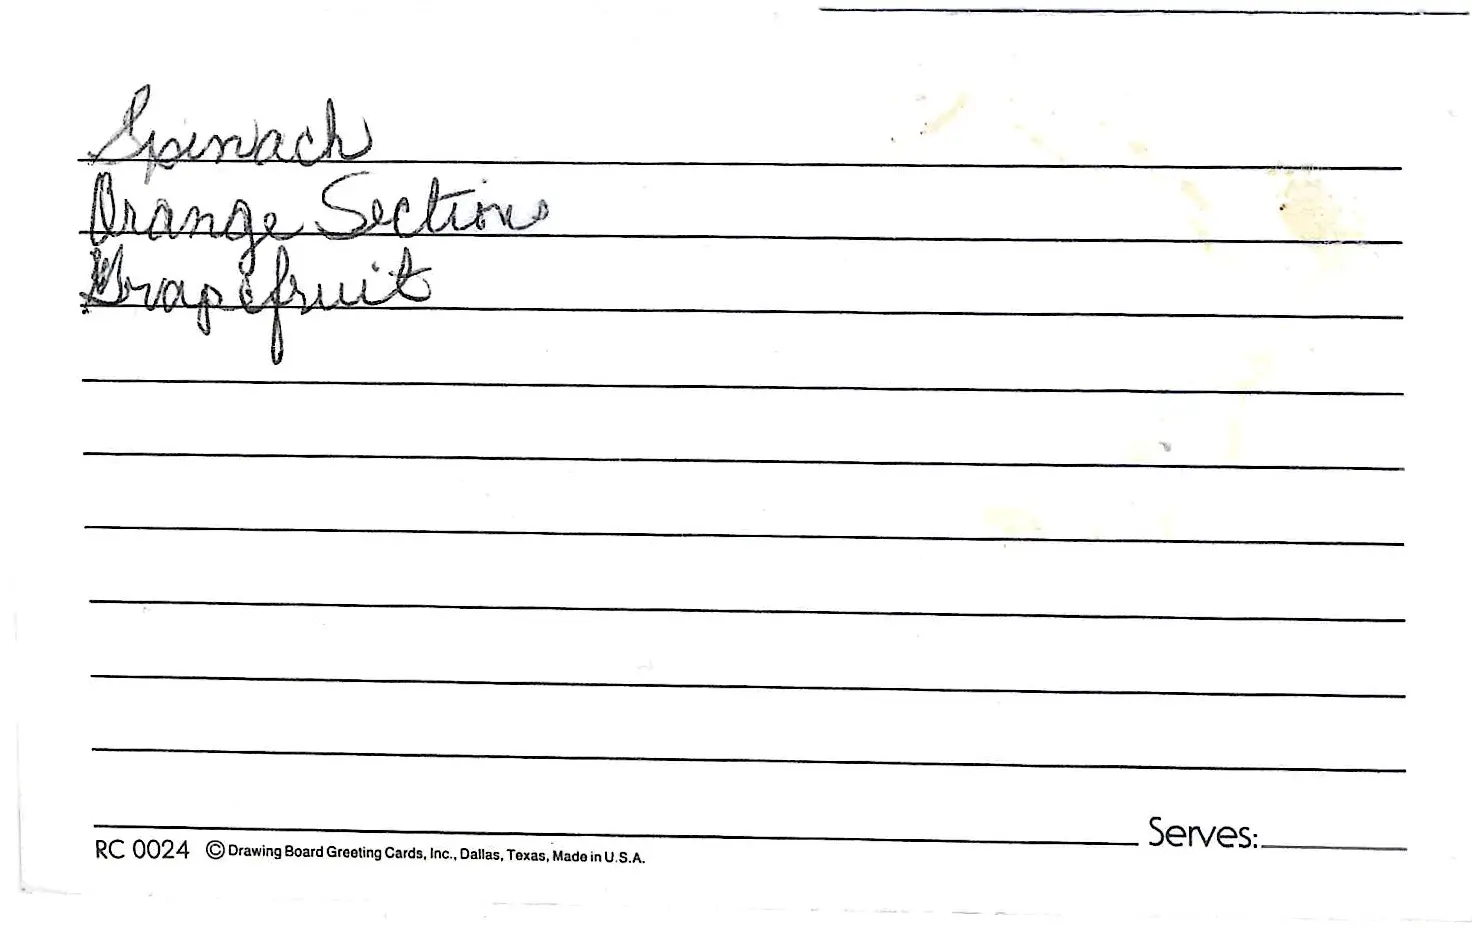 Spinach
Orange Sections
Grapefruit
Serves:
RC 0024 © Drawing Board Greeting Cards, Inc., Dallas, Texas, Made in U.S.A.